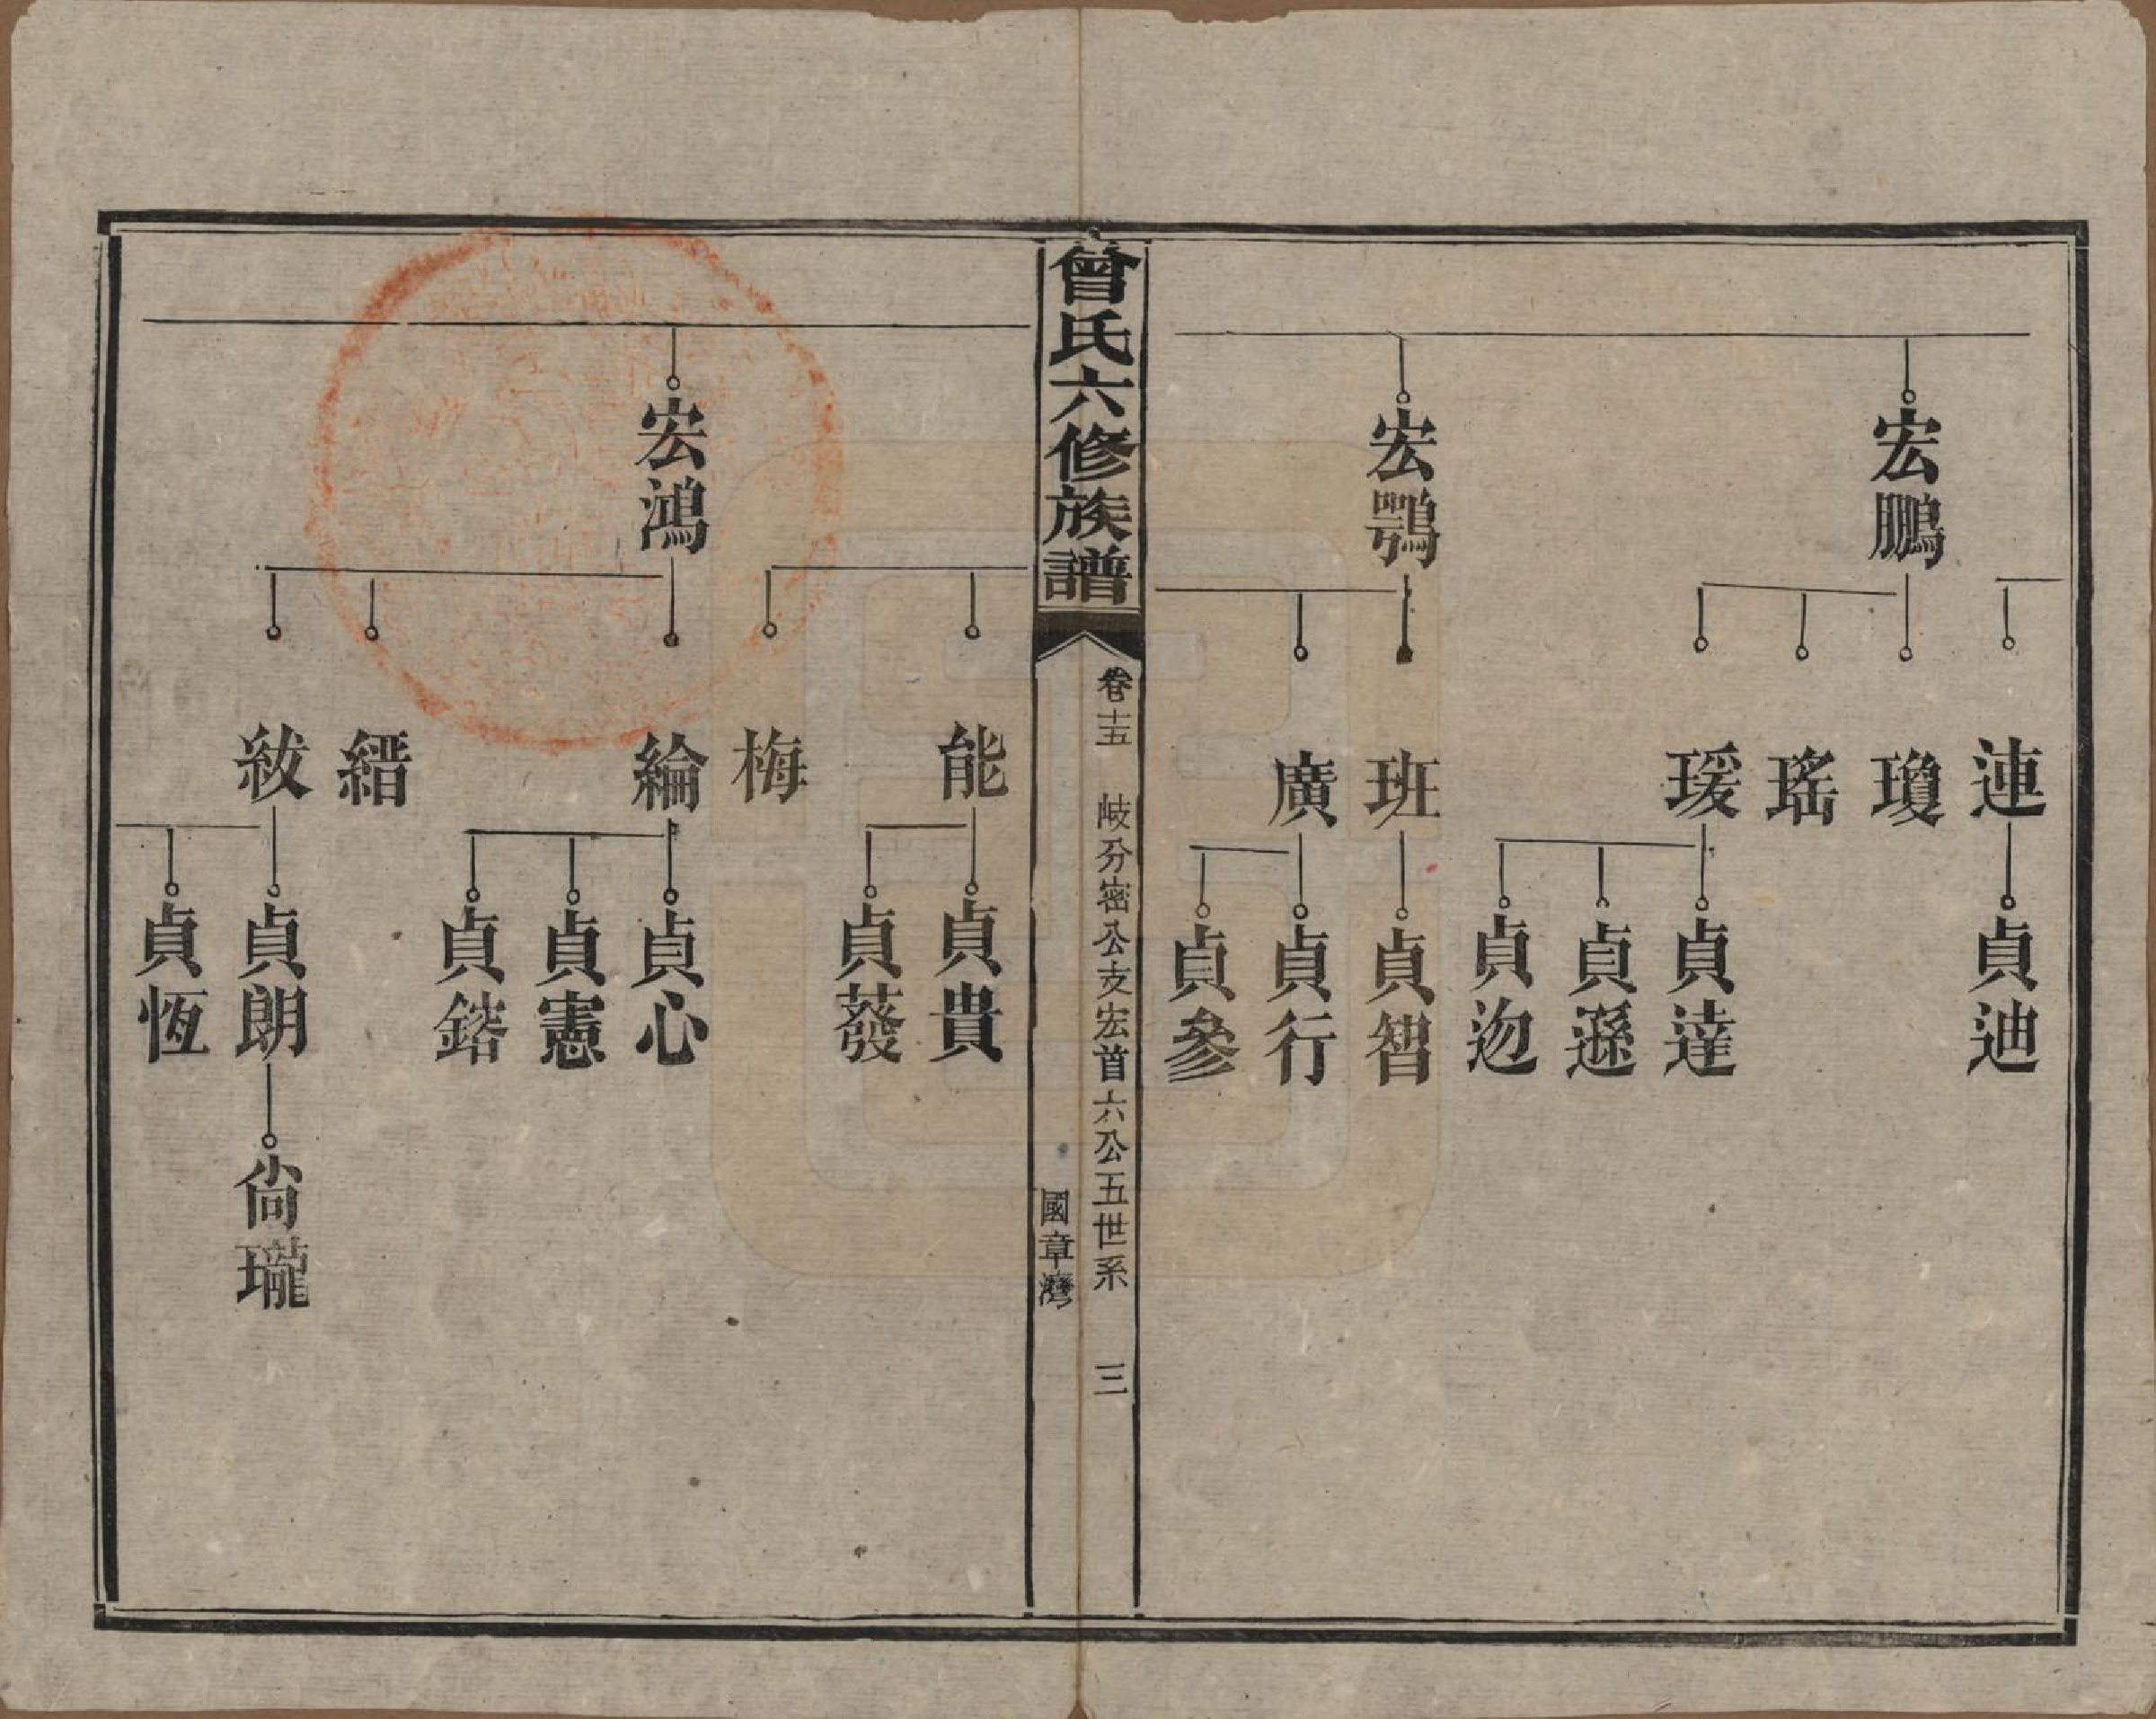 宏鵬
宏鶚
連
瓊
瑤
瑗
班
廣
貞迪
貞達
貞遜
貞迨
貞智
貞行
貞參
曾氏六修族譜
卷十五 岐分密公支宏首六公五世系 三
國章灣
宏鴻
能
梅
綸
縉
紱
貞貴
貞發
貞心
貞憲
貞鎔
貞朗
貞恆
尙瓏